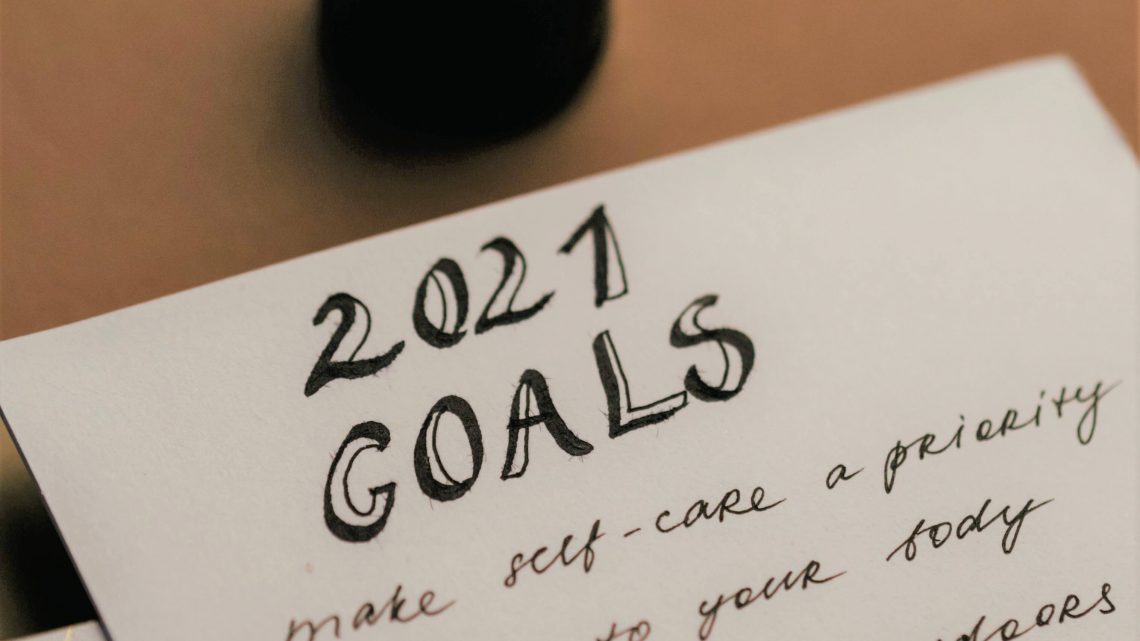 2021
GOALS
make self-care a priority
to your body